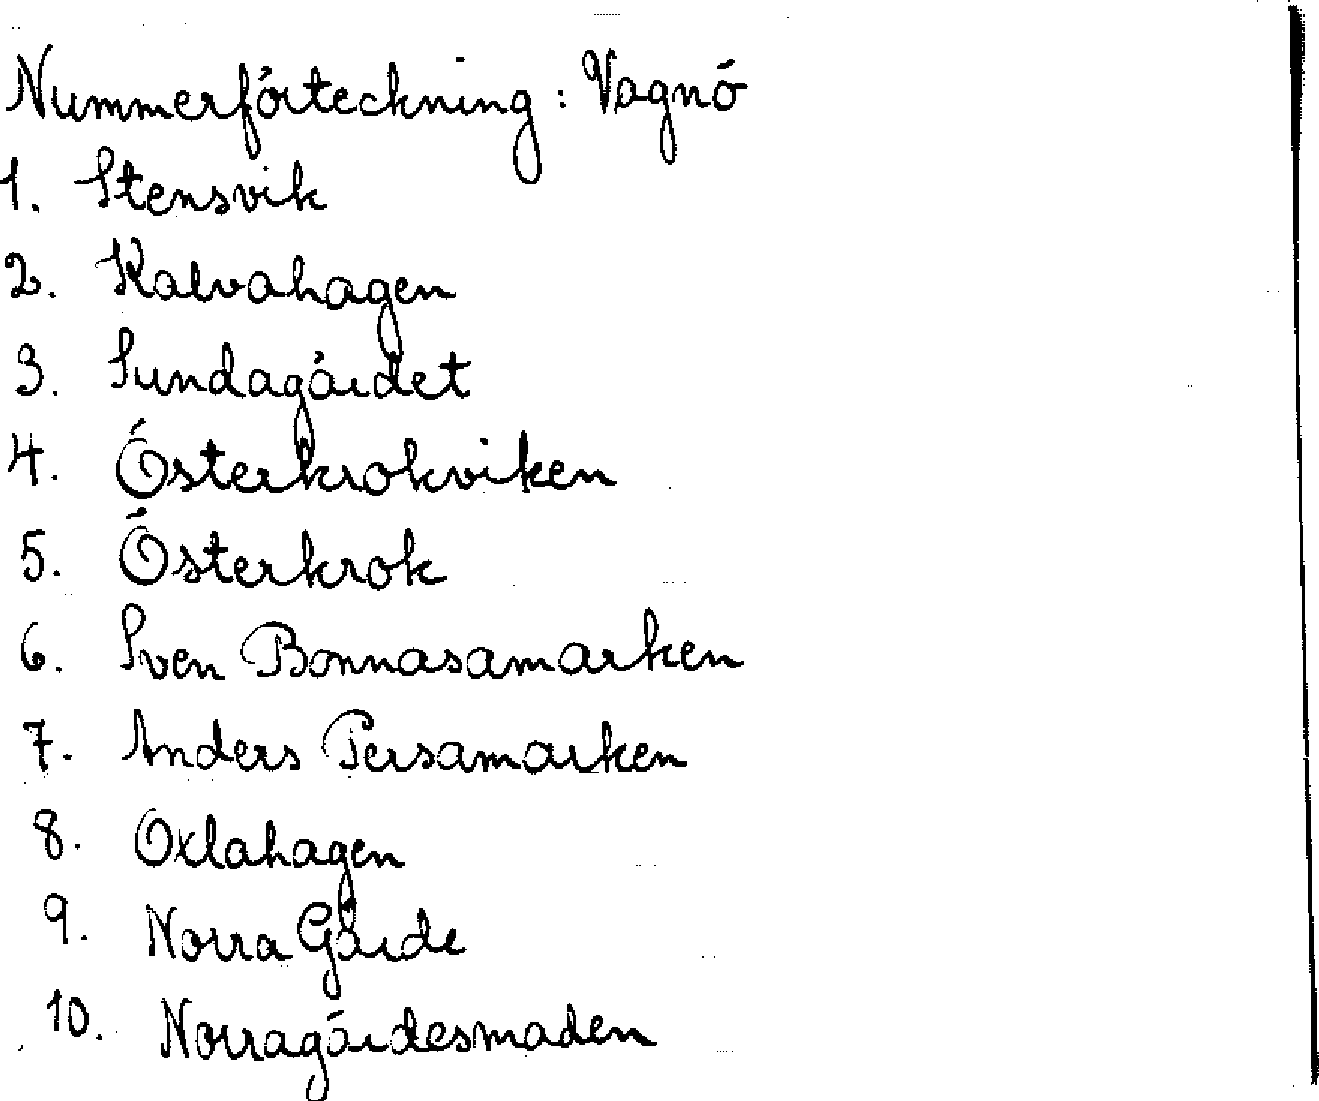 Nummerförteckning: Vagnö
1. Stensvik
2. Kalvahagen
3. Sundagärdet
4. Österkrokviken
5. Österkrok
6. Sven Bonnasamarken
7. Anders Persamarken
8. Oxlahagen
9. Norra Gärde
10. Norragärdesmaden